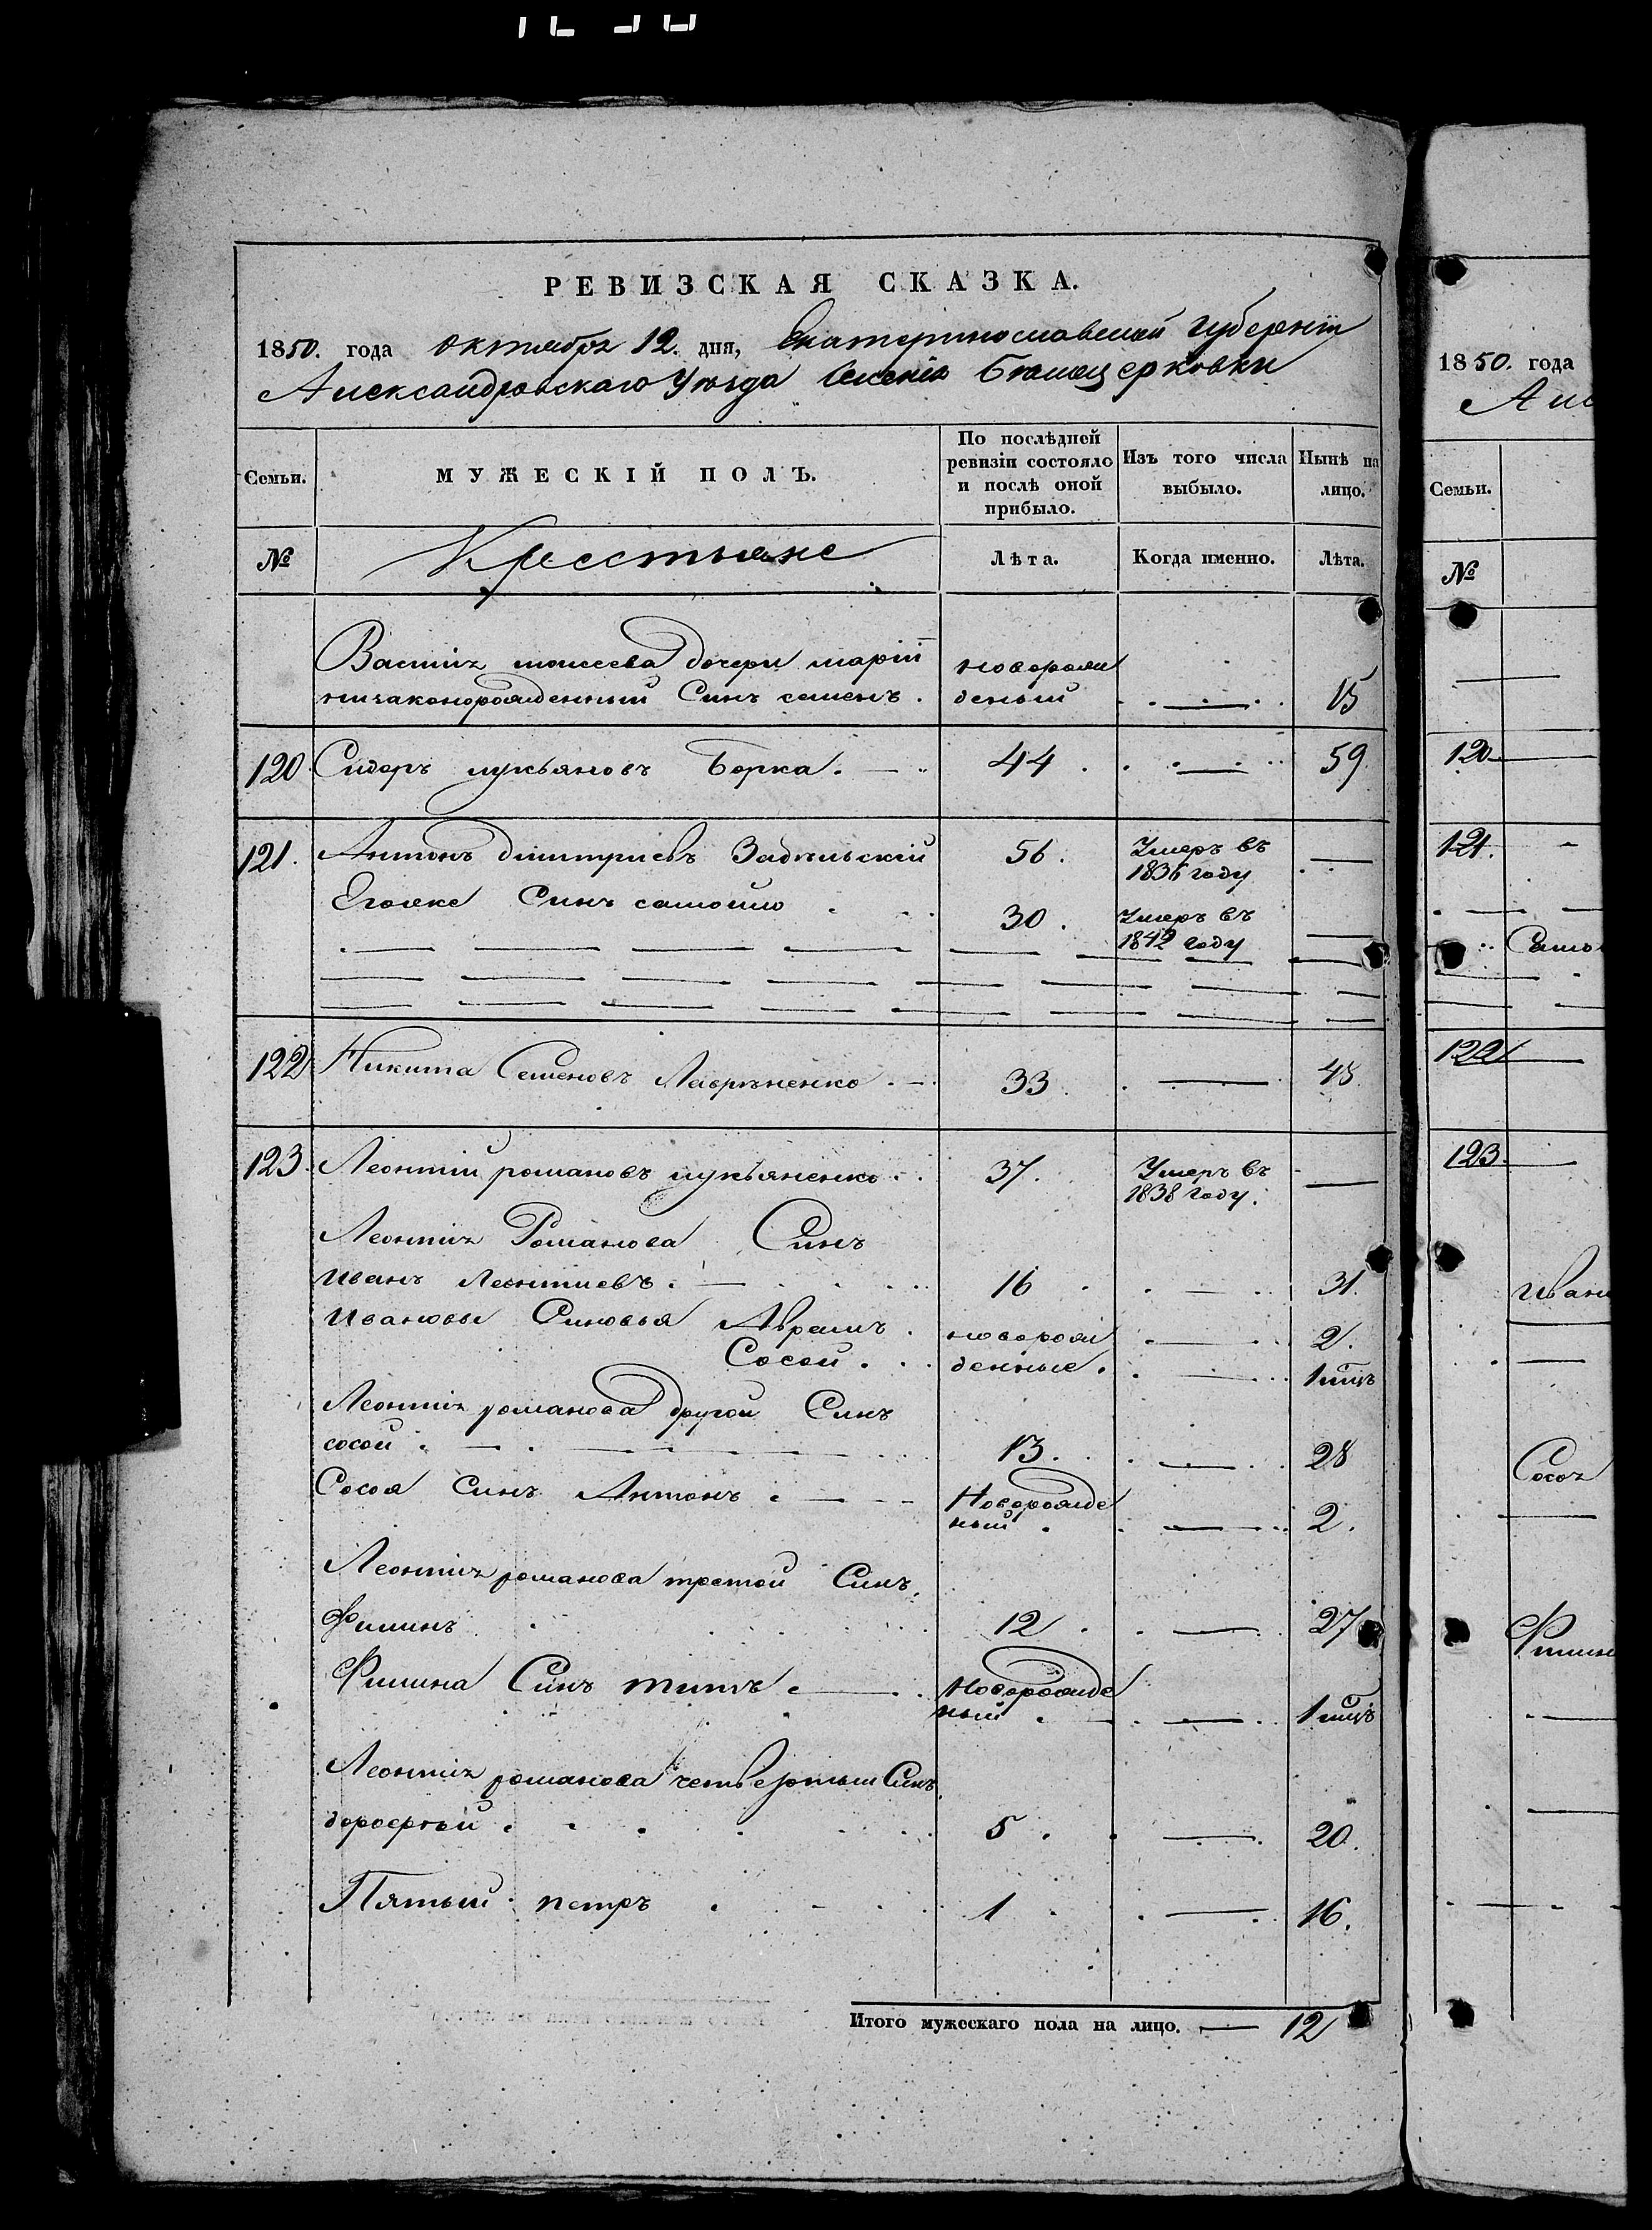 РЕВИЗСКАЯ СКАЗКА.
1850. года октября 12. дня, Екатеринославской Губерніи
Александровскаго Уѣзда Селенія Бѣлоцерковки
Семьи.
МУЖЕСКІЙ ПОЛЪ.
По послѣдней ревизіи состояло и послѣ оной прибыло.
Изъ того числа выбыло.
Нынѣ на лицо.
№ Крестьяне Лѣта. Когда именно. Лѣта.
моисеева дочери маріи новорож
незаконорожденный Синъ семенъ. деный 15
120 Сидоръ лукьяновъ Борка. 44 59
121. Антонъ дмитріевъ 56. Умеръ въ 1836 году
Егоже Синъ самойло 30. Умеръ въ 1842 году
122 Никита Семеновъ Лавріненко. 33. 48
123. Леонтій романовъ лукьяненко. 37. Умеръ въ 1838 году.
Леонтія Романова Синъ
иванъ Леонтиевъ. 16 31
Ивановы Синовья Аврамъ. новорож 2.
Сосой. денные. 1 мцъ
Леонтія романова другой Синъ
сосой. 13. 28
Сосоя Синъ Антонъ. Новорожде
ный. 2.
Леонтія романова третой Синъ.
Филипъ 12. 27
Филипа Синъ титъ. Новорожде
ный 1 мцъ
Леонтія романова четвертый Синъ
дорофтъй. 5. 20.
Пятый петръ 1 16.
Итого мужескаго пола на лицо. 12
1850. года
Але
Семьи.
№
120
121.
Само
122
123.
Иван
Сосоя
Филип